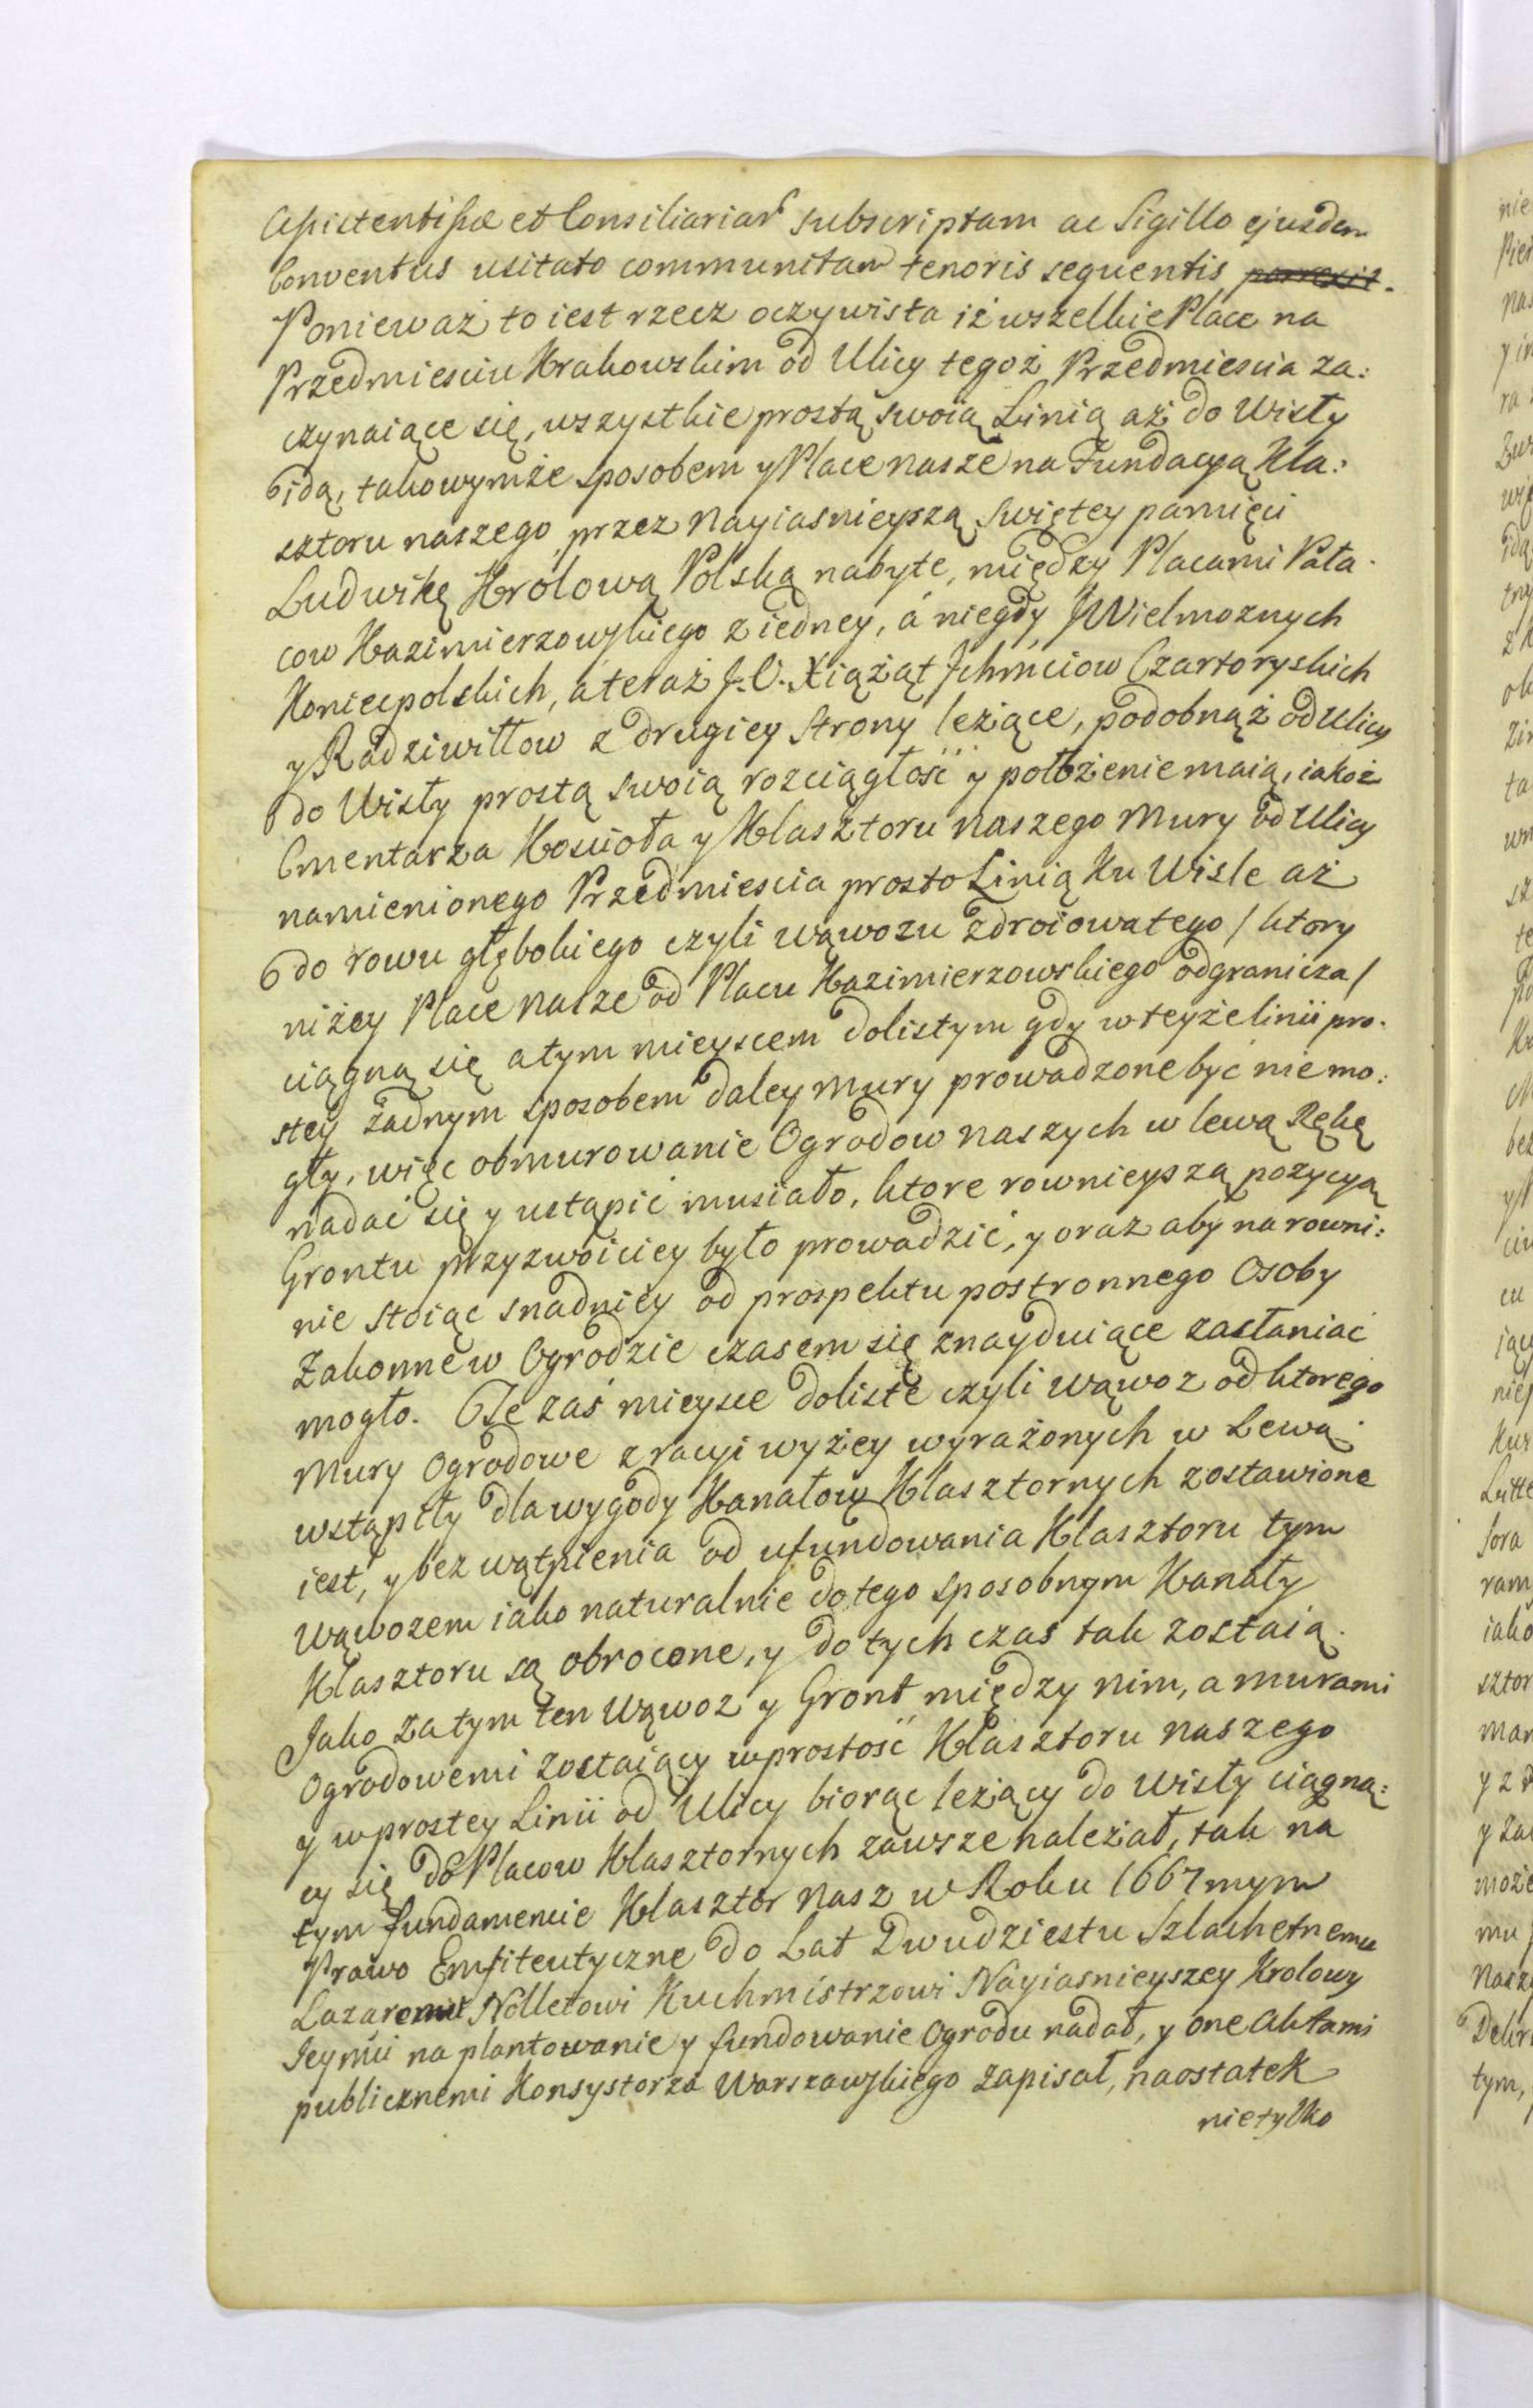 Assistentissæ et Consiliariar subscriptam ac Sigillo ejusdem
Conventus usitato communitam tenoris sequentis porrexit.
Ponieważ to iest rzecz oczywista iż wszelkie Place na
Przedmiesciu Krakowskim od Ulicy tegoż Przedmiescia za:
czynaiące się, wszystkie prostą swoią Linią aż do Wisły
idą, takowymże sposobem y Place nasze na Fundacyą Kla:
sztoru naszego przez Nayiasnieyszą swiętey pamięci
Ludwikę Krolową Polską nabyte, między Placami Pała
cow Kazimierzowskiego z iedney, á niegdy JWielmoznych
Koniecpolskich, á teraz J. O. Xiążąt Jchmciow Czartoryskich
y Radziwiłłow z drugiey strony leżące, podobnąż od Ulicy
do Wisły prostą swoią rozciągłość y położenie maią, iakoż
Cmentarza Kościoła y Klasztoru naszego Mury od Ulicy
namienionego Przedmiescia prosto Linią Ku Wisle aż
do rowu głębokiego czyli wąwozu zdroiowatego / ktory
niżey Place nasze od Placu Kazimierzowskiego odgranicza /
ciągną się a tym mieyscem dolistym gdy w teyże linii pro-
stey żadnym sposobem daley Mury prowadzone być nie mo:
gły, więc obmurowanie Ogrodow naszych w lewą Rękę
nadać się y ustąpić musiało, ktore rownieyszą pozycyą
Grontu przyzwoiciey było prowadzić, y oraz aby na rowni:
nie stoiąc snadniey od prospektu postronnego Osoby
Zakonne w Ogrodzie czasem się znayduiące zasłaniać
mogło. Te zaś mieysce doliste czyli wąwoz od ktorego
Mury Ogrodowe z racyi wyżey wyrażonych w Lewą
wstąpiły dla wygody Kanałow Klasztornych zostawione
iest, y bez wątpienia od ufundowania Klasztoru tym
Wąwozem iako naturalnie do tego sposobnym Kanały
Klasztoru są obrocone, y do tych czas tak zostaią.
Jako zatym ten Wąwoz y Gront między nim, a murami
Ogrodowemi zostaiący w prostość Klasztoru naszego
y w prostey Linii od Ulicy biorąc leżący do Wisły ciągną:
cy się do Placow Klasztornych zawsze należał, tak na
tym fundamencie Klasztor nasz w Roku 1667mym
Prawo Emfiteutyczne do Lat Dwudziestu Szlachetnemu
Lazaremu Nolletowi Kuchmistrzowi Nayiasnieyszey Krolowy
Jeymci na plantowanie y fundowanie Ogrodu nadał, y one Aktami
publicznemi Konsystorza Warszawskiego zapisał, naostatek
nietylko
nie
Pier
ra
wię
ta
be
cu
nie
Lutte
ram
iako
sztor
y za
może
mu
Nasz
tym,